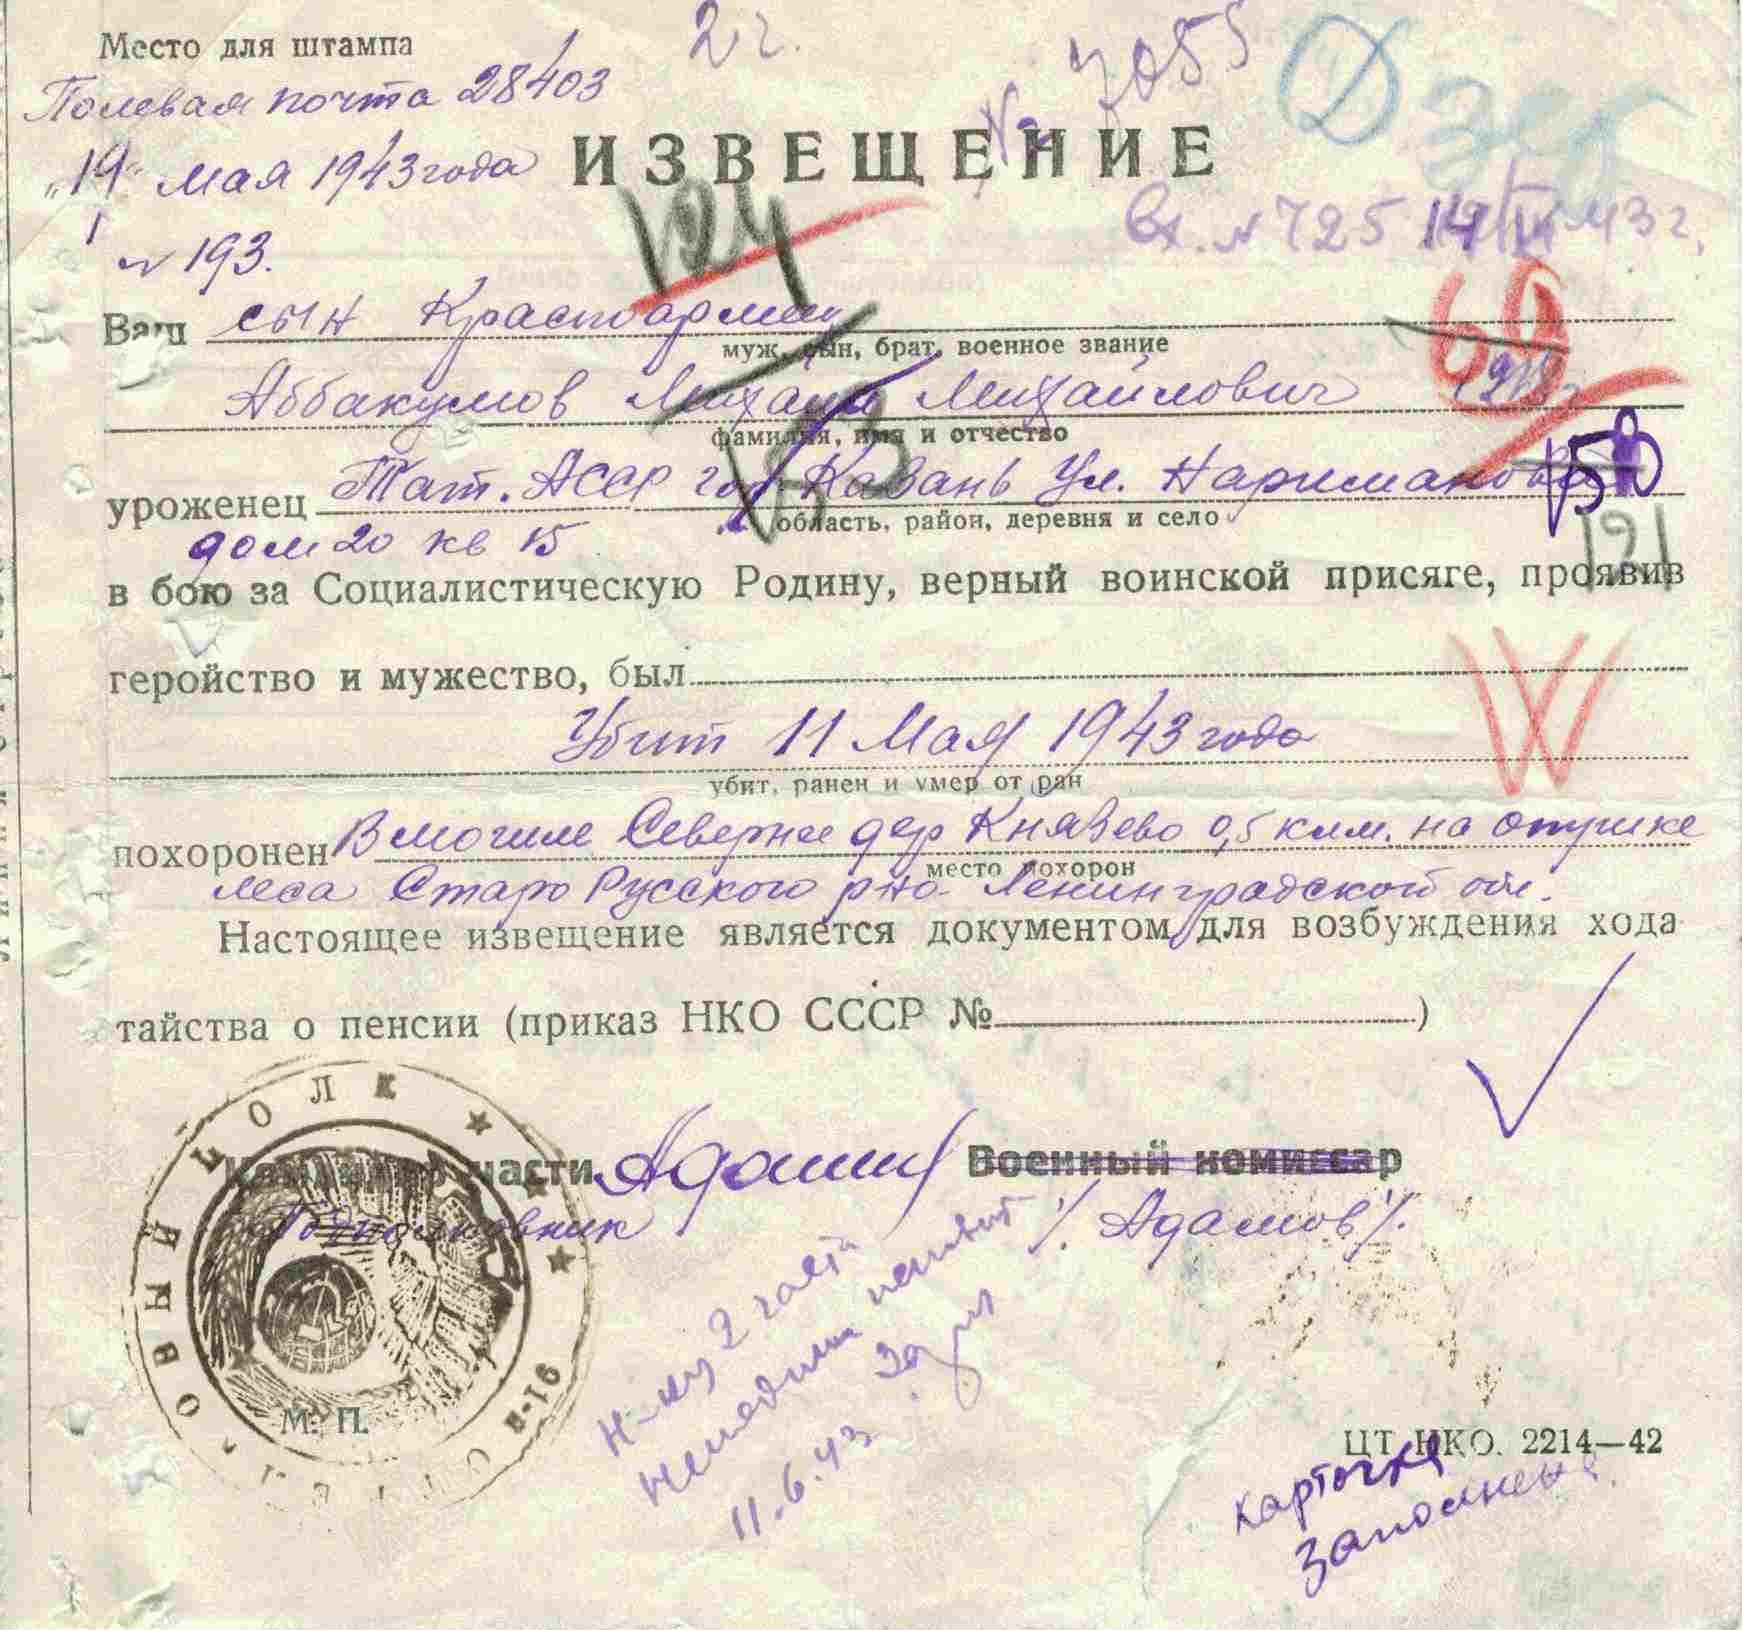 Место для штампа
2 г.
№ 3055
Полевая почта 28403
"19" мая 1943 года
ИЗВЕЩЕНИЕ
Вх. № 725
43 г.
№ 193.
124
60
Ваш сын Красноармеец
муж, сын, брат, военное звание
Аббакумов Михаил Михайлович
фамилия, имя и отчество
уроженец Тат. АССР гор Казань Ул. Нариманова
область, район, деревня и село
дом 20 кв 15
в бою за Социалистическую Родину, верный воинской присяге, проявив
геройство и мужество, был
Убит 11 Мая 1943 года
убит, ранен и умер от ран
похоронен В могиле Севернее дер Князево 0,5 клм. на опушке
место похорон
леса Старо Русского р-но Ленинградской обл.
Настоящее извещение является документом для возбуждения хода
тайства о пенсии (приказ НКО СССР №)
Командир части Военный комиссар
Подполковник /Адамов/.
М. П.
Н-ку 2 части
11.6.43
ЦТ НКО. 2214—42
карточка
заполнена.